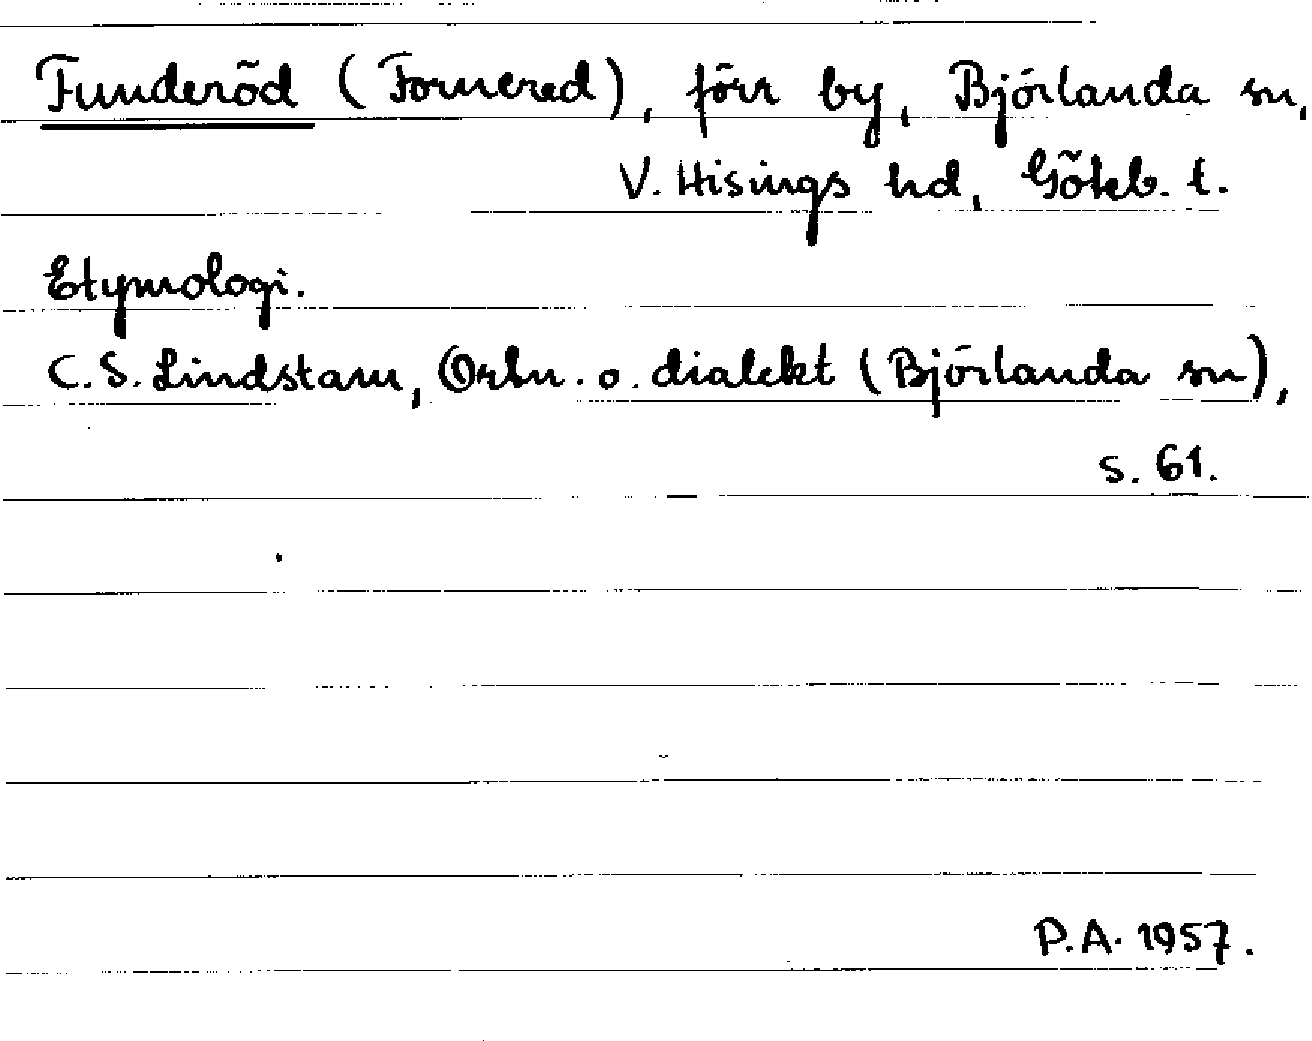 Funderöd (Fornered), förr by, Björlanda sn,
V. Hisings hd, Göteb. l.
Etymologi.
C. S. Lindstam, Ortn. o. dialekt (Björlanda sn),
s. 61.
P.A. 1957.